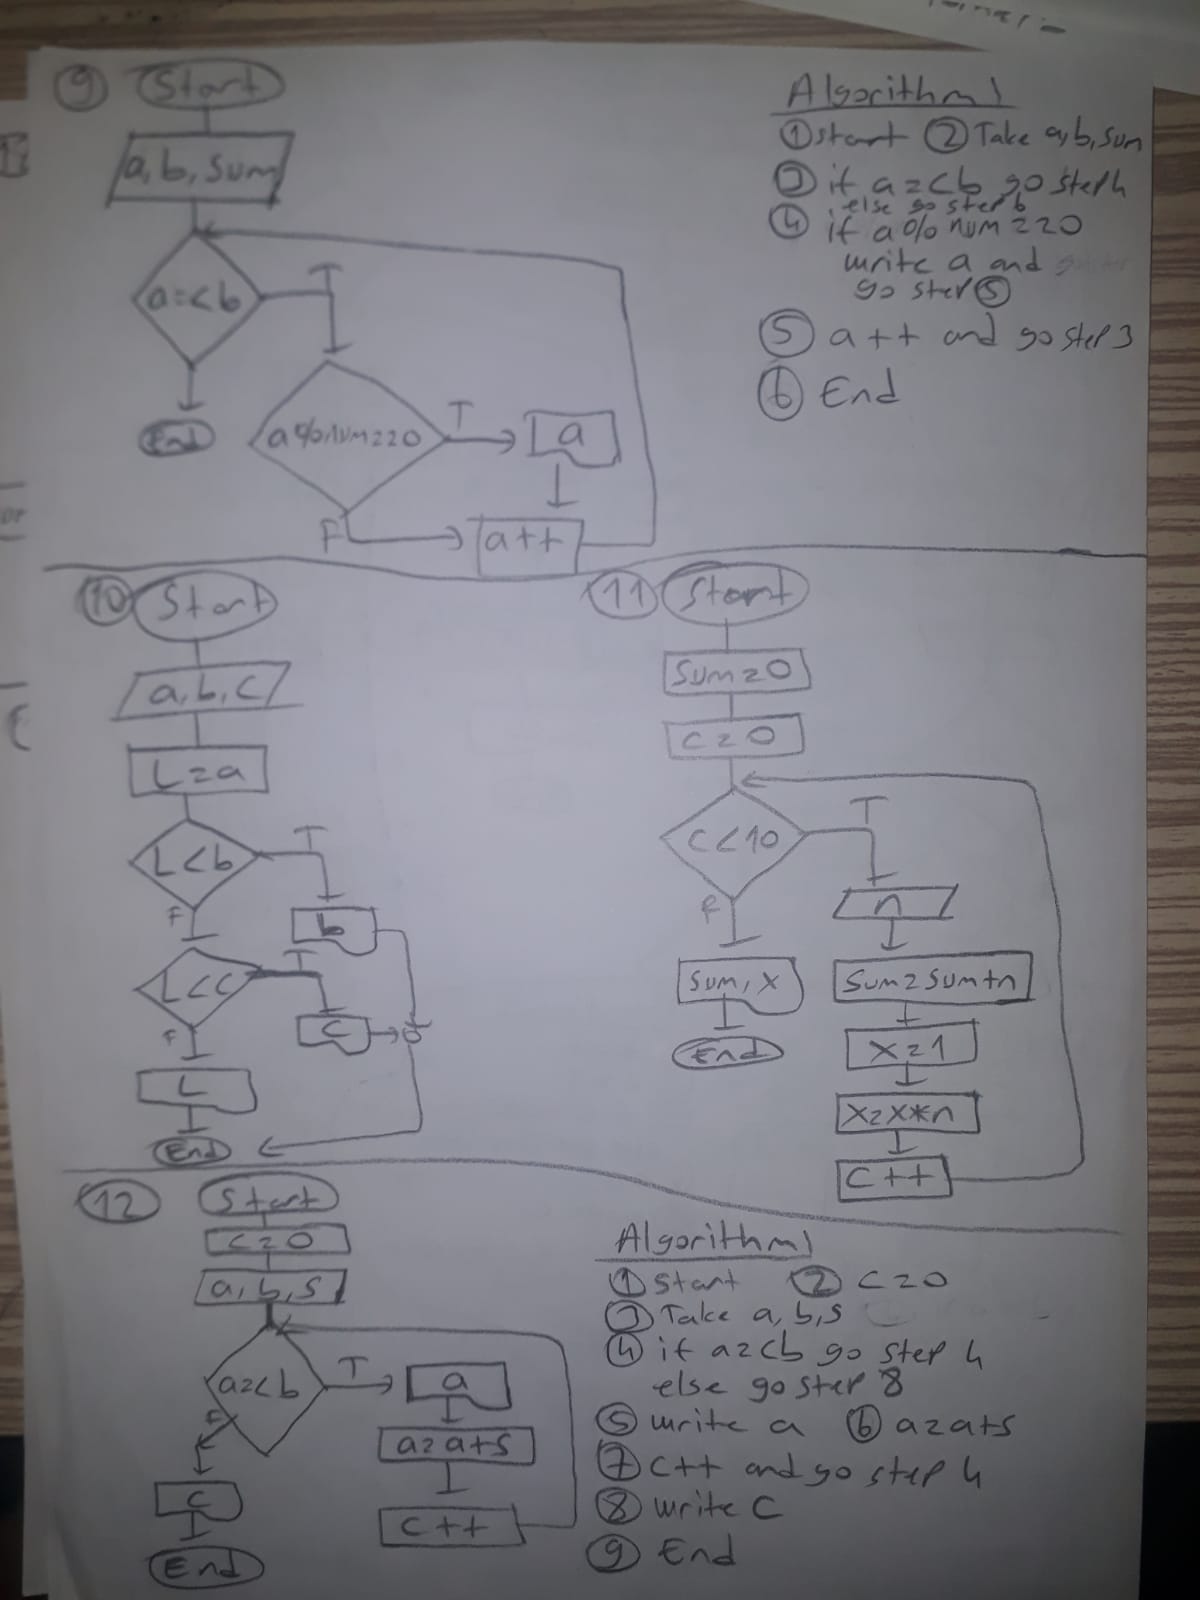 9 Start
a, b, sum
a=<b
T
End
a%num==0
T
a
F
a++
Algorithm
1 start 2 Take a, b, sum
3 if a=<b go step 4
else go step 6
4 if a%num==0
write a and
go step 5
5 a++ and go step 3
6 End
10 Start
a, b, c
L=a
L<b
T
F
b
L<c
T
F
c
L
End
11 Start
Sum=0
C=0
C<10
T
F
n
Sum=Sum+n
X=1
X=X*n
C++
Sum, X
End
12 Start
C=0
a, b, s
a=<b
T
a
a=a+s
C++
F
C
End
Algorithm
1 Start 2 C=0
3 Take a, b, s
4 if a=<b go step 4
else go step 8
5 write a 6 a=a+s
7 C++ and go step 4
8 write C
9 End